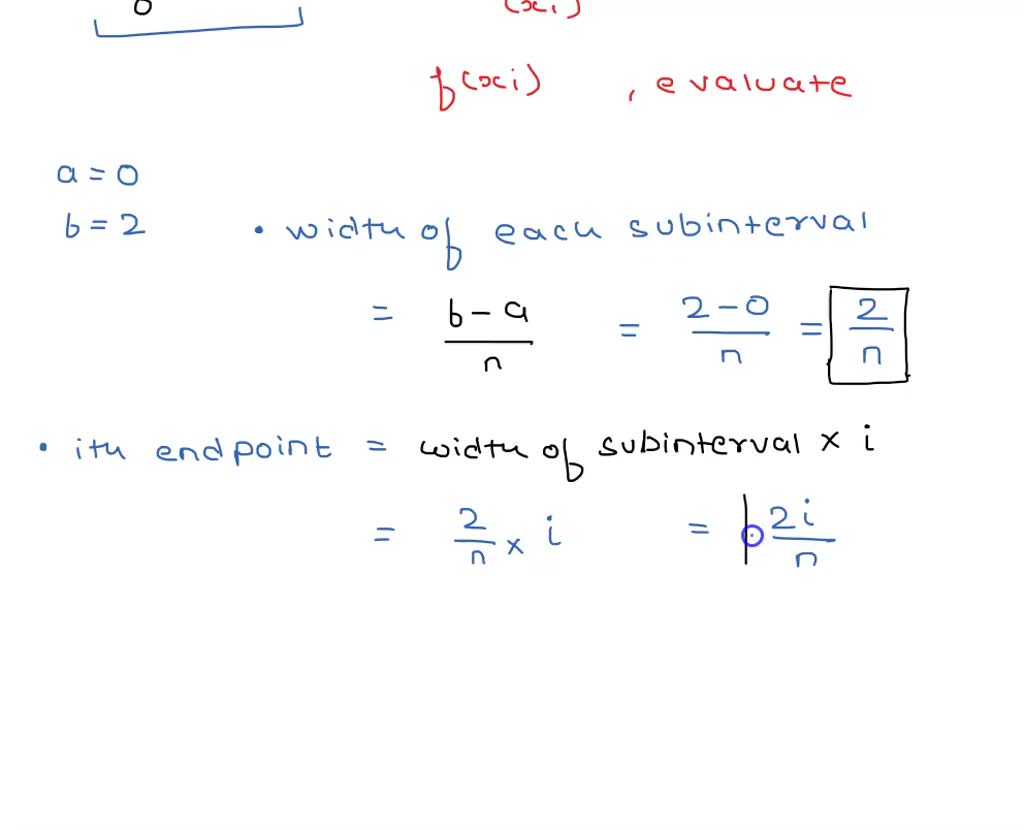 0 (xi)
f(xi) , evaluate
a = 0
b = 2 • width of each subinterval
= b - a / n = 2 - 0 / n = 2 / n
• ith endpoint = width of subinterval × i
= 2/n × i = 2i/n